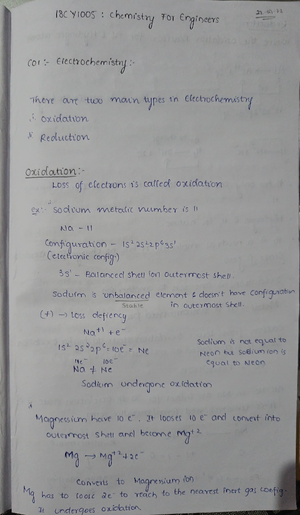 18CY1005 : Chemistry For Engineers
CO1:- Electrochemistry:-
There are two main types in Electrochemistry
* Oxidation
* Reduction
Oxidation:-
Loss of electrons is called oxidation
Ex:- Sodium metalic number is 11
Na - 11
Configuration - 1s² 2s² 2p⁶ 3s¹
(electronic config-)
3s¹ - Balanced shell (or) outermost shell.
Sodium is unbalanced element & doesn't have configuration
Stable in outermost shell.
(+) → Loss
Na⁺¹ + e⁻
1s² 2s² 2p⁶ = 10e⁻ = Ne
Sodium is not equal to
Neon but sodium ion is
equal to Neon
11e⁻ 10e⁻
Na ≠ Ne
Sodium undergone oxidation
*
Magnesium have 10 e⁻. It looses 10 e⁻ and convert into
outermost shell and become Mg⁺²
Mg → Mg⁺² + 2e⁻
Converts to Magnesium ion
Mg has to loose 2e⁻ to reach to the nearest inert gas config.
It undergoes oxidation